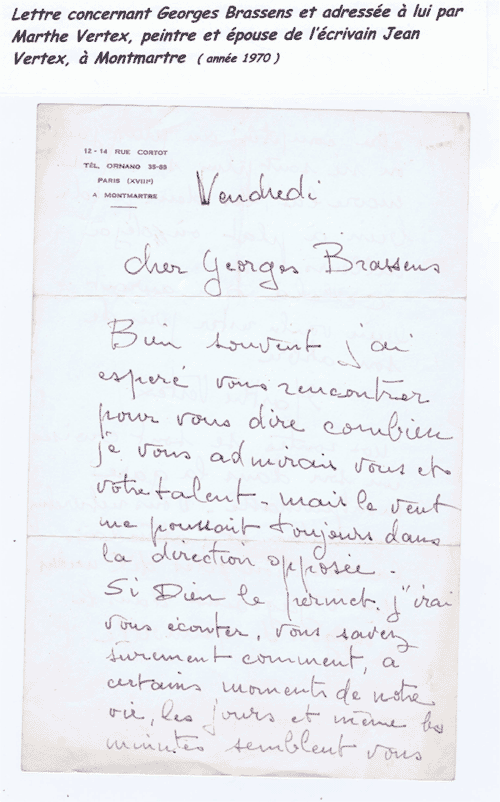 Lettre concernant Georges Brassens et adressée à lui par
Marthe Vertex, peintre et épouse de l'écrivain Jean
Vertex, à Montmartre ( année 1970 )
12-14 RUE CORTOT
TÉL. ORNANO 39-80
PARIS (XVIIIe)
A MONTMARTRE
Vendredi
cher Georges Brassens
Bien souvent j'ai
esperé vous rencontrer
pour vous dire combien
je vous admirais vous et
votre talent. mais le vent
me poussait toujours dans
la direction opposée.
Si Dieu le permet. j'irai
vous écouter, vous savez
surement comment, a
certains moments de notre
vie, les jours et même les
minutes semblent vous